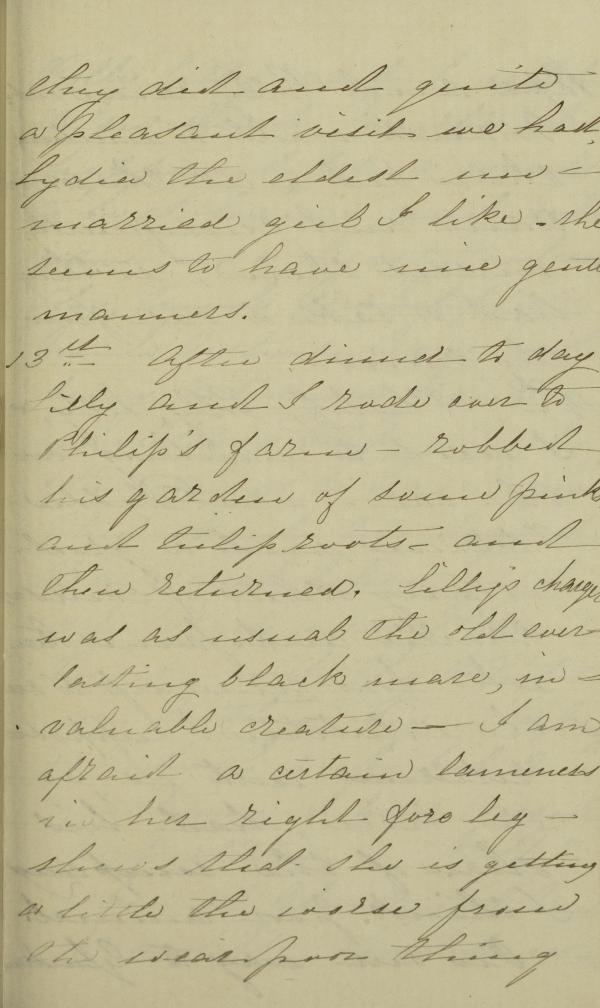 they did and quite
a pleasant visit we had,
Lydia the eldest un-
married girl I like - she
seems to have nice gentle
manners.
13th After dinner to day
Lilly and I rode over to
Philip's farm - robbed
his garden of some pinks
and tulip roots - and
then returned. Lilly's charger
was as usual the old ever
lasting black mare, in-
valuable creature — I am
afraid a certain lameness
in her right fore leg —
shows that she is getting
a little the worse from
the wear poor thing